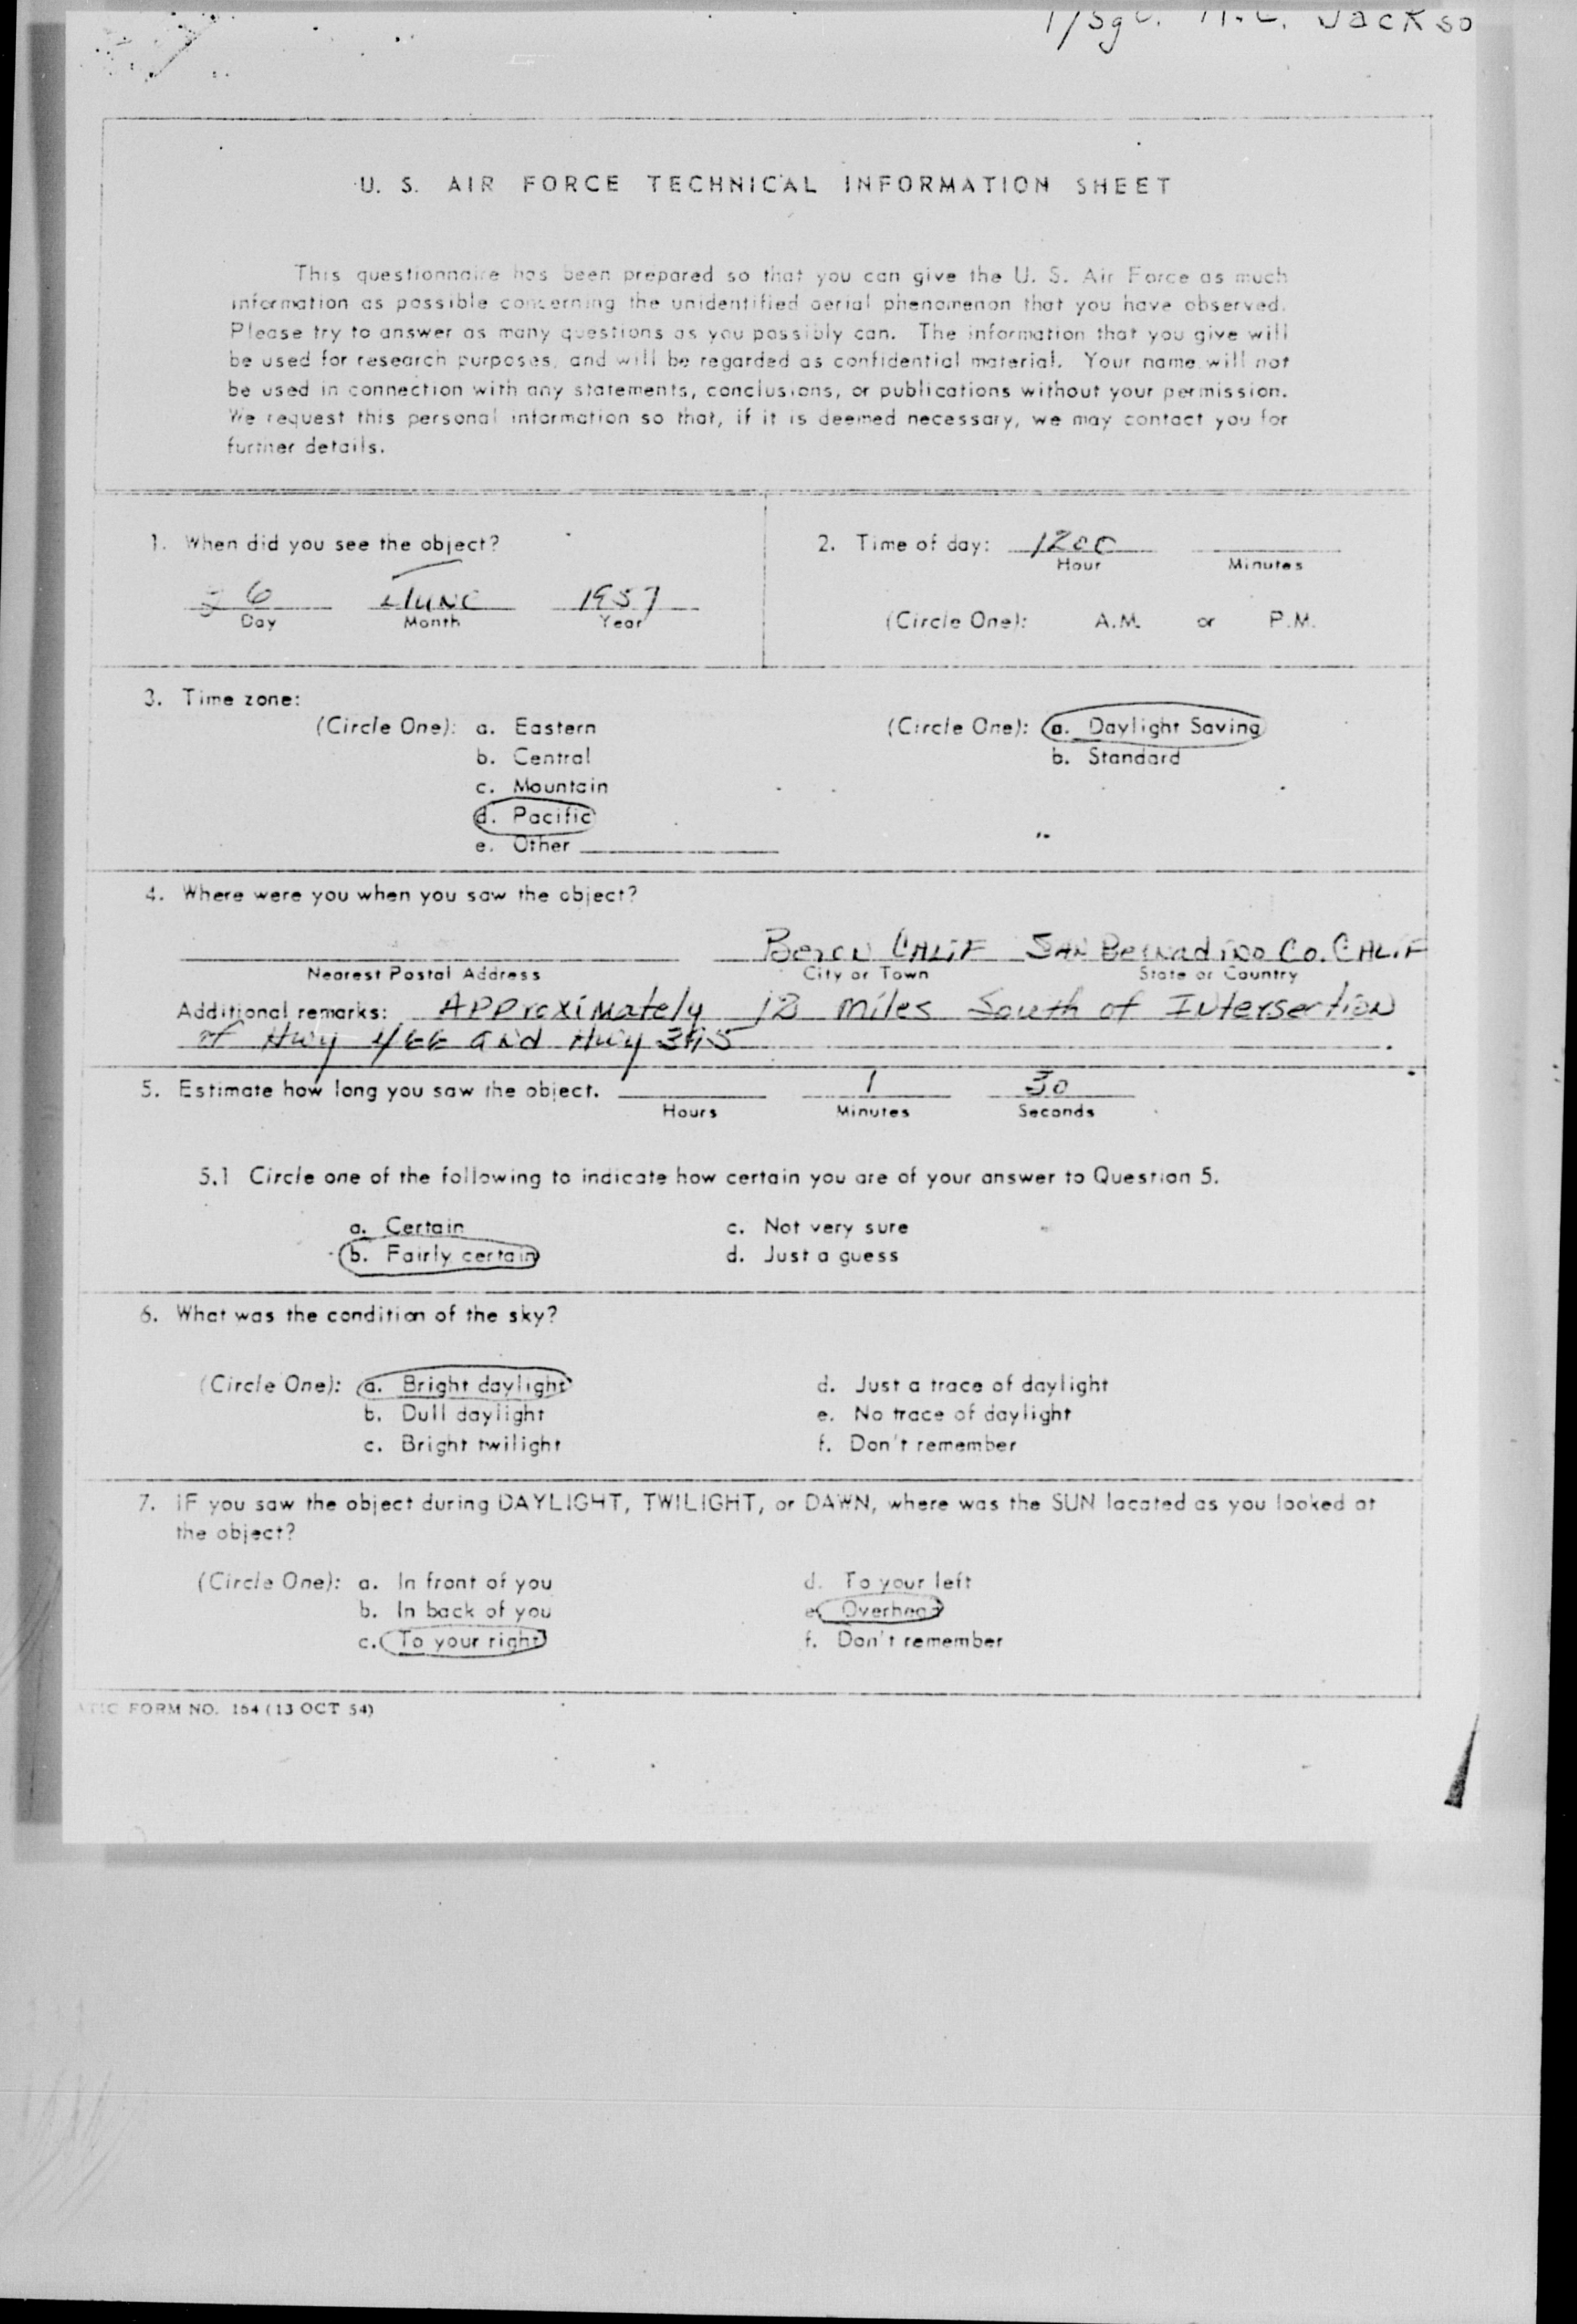 T/Sgt. H.C. Jackso
U. S. AIR FORCE TECHNICAL INFORMATION SHEET
This questionnaire has been prepared so that you can give the U. S. Air Force as much
information as possible concerning the unidentified aerial phenomenon that you have observed.
Please try to answer as many questions as you possibly can. The information that you give will
be used for research purposes, and will be regarded as confidential material. Your name will not
be used in connection with any statements, conclusions, or publications without your permission.
We request this personal information so that, if it is deemed necessary, we may contact you for
further details.
1. When did you see the object?
6 June 1957
Day Month Year
2. Time of day: 1200
Hour Minutes
(Circle One): A.M. or P.M.
3. Time zone:
(Circle One): a. Eastern
b. Central
c. Mountain
d. Pacific
e. Other
(Circle One): a. Daylight Saving
b. Standard
4. Where were you when you saw the object?
CALIF SAN Bernadino Co. CALIF
Nearest Postal Address City or Town State or Country
Additional remarks: Approximately 12 miles South of Intersection
of Hwy 466 and Hwy 395
5. Estimate how long you saw the object. 1 30
Hours Minutes Seconds
5.1 Circle one of the following to indicate how certain you are of your answer to Question 5.
a. Certain
b. Fairly certain
c. Not very sure
d. Just a guess
6. What was the condition of the sky?
(Circle One): a. Bright daylight
b. Dull daylight
c. Bright twilight
d. Just a trace of daylight
e. No trace of daylight
f. Don't remember
7. IF you saw the object during DAYLIGHT, TWILIGHT, or DAWN, where was the SUN located as you looked at
the object?
(Circle One): a. In front of you
b. In back of you
c. To your right
d. To your left
e. Overhead
f. Don't remember
ATIC FORM NO. 164 (13 OCT 54)